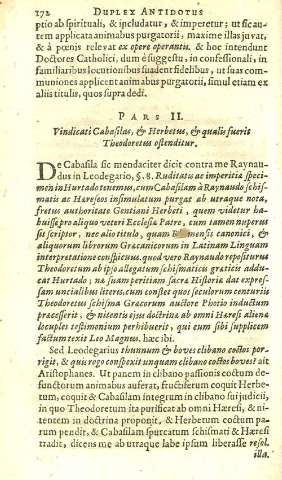 172 DUPLEX ANTIDOTUS
ptio ab spirituali, & includatur, & imperetur; ut sic au-
tem applicata animabus purgatorii, maxime illas juvat,
& à pœnis relevat ex opere operantis. & hoc intendunt
Doctores Catholici, dum è suggestu, in confessionali, in
familiaribus locutionibus suadent fidelibus, ut suas com-
muniones applicent animabus purgatorii, simul etiam ex
aliis titulis, quos supra dedi.
PARS II.
Vindicati Cabasilas, & Herbetus, & qualis fueris
Theodoretus ostenditur.
De Cabasila sic mendaciter dicit contra me Raynau-
dus in Leodegario, §. 8. Ruditatis ac imperitia speci-
men in Hurtado tenemus, cum Cabasilam à Raynaudo schis-
matis ac Hæreseos insimulatum purgat ab utraque nota,
fretus authoritate Gentiani Herbeti, quem videtur ha-
buisse pro aliquo veteri Ecclesia Patre, cum tamen nuperus
sit scriptor, nec alio titulo, quam canonici, &
aliquorum librorum Græcanicorum in Latinam Linguam
interpretatione conspicuus. quod vero Raynaudo repositurus
Theodoretum ab ipso allegatum schismaticis graticis addu-
cat Hurtado; na suam peritiam sacra Historia dat expres-
sam uncialibus literis. cum constet quot seculorum centuriis
Theodoretus schisma Græcorum auctore Photio inductum
præcesserit, & nitentis ejus doctrina ab omni Haresi aliena
locuples testimonium perhibuerit, qui cum sibi supplicem
factum texit Leo Magnus, hæc ibi.
Sed Leodegarius thunnum & boves clibano coctos por-
rigit, & quis rogo conspexit unquam clibano coctos boves? ait
Aristophanes. Ut panem in clibano passionis coctum de-
functorum animabus auferat, fructiferum coquit Herbe-
tum, coquit & Cabasilam integrum in clibano sui judicii,
in quo Theodoretum ita purificat ab omni Hæresi, & ni-
tentem in doctrina proponit, & Herbetum coctum pa-
rum pendit, & Cabasilam spurcatum schismati & Hæresi
tradit, dicens me ab utraque labe ipsum liberasse resol.
illa.